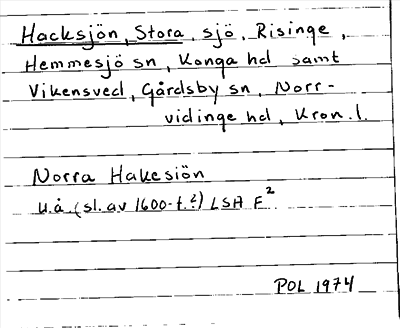 Hacksjön, Stora, sjö, Risinge,
Hemmesjö sn, Konga hd samt
Vikensved, Gårdsby sn, Norr-
vidinge hd, Kron. l.
Norra Hakesiön
u.å. (sl. av 1600-t.?) LSA F²
POL 1974